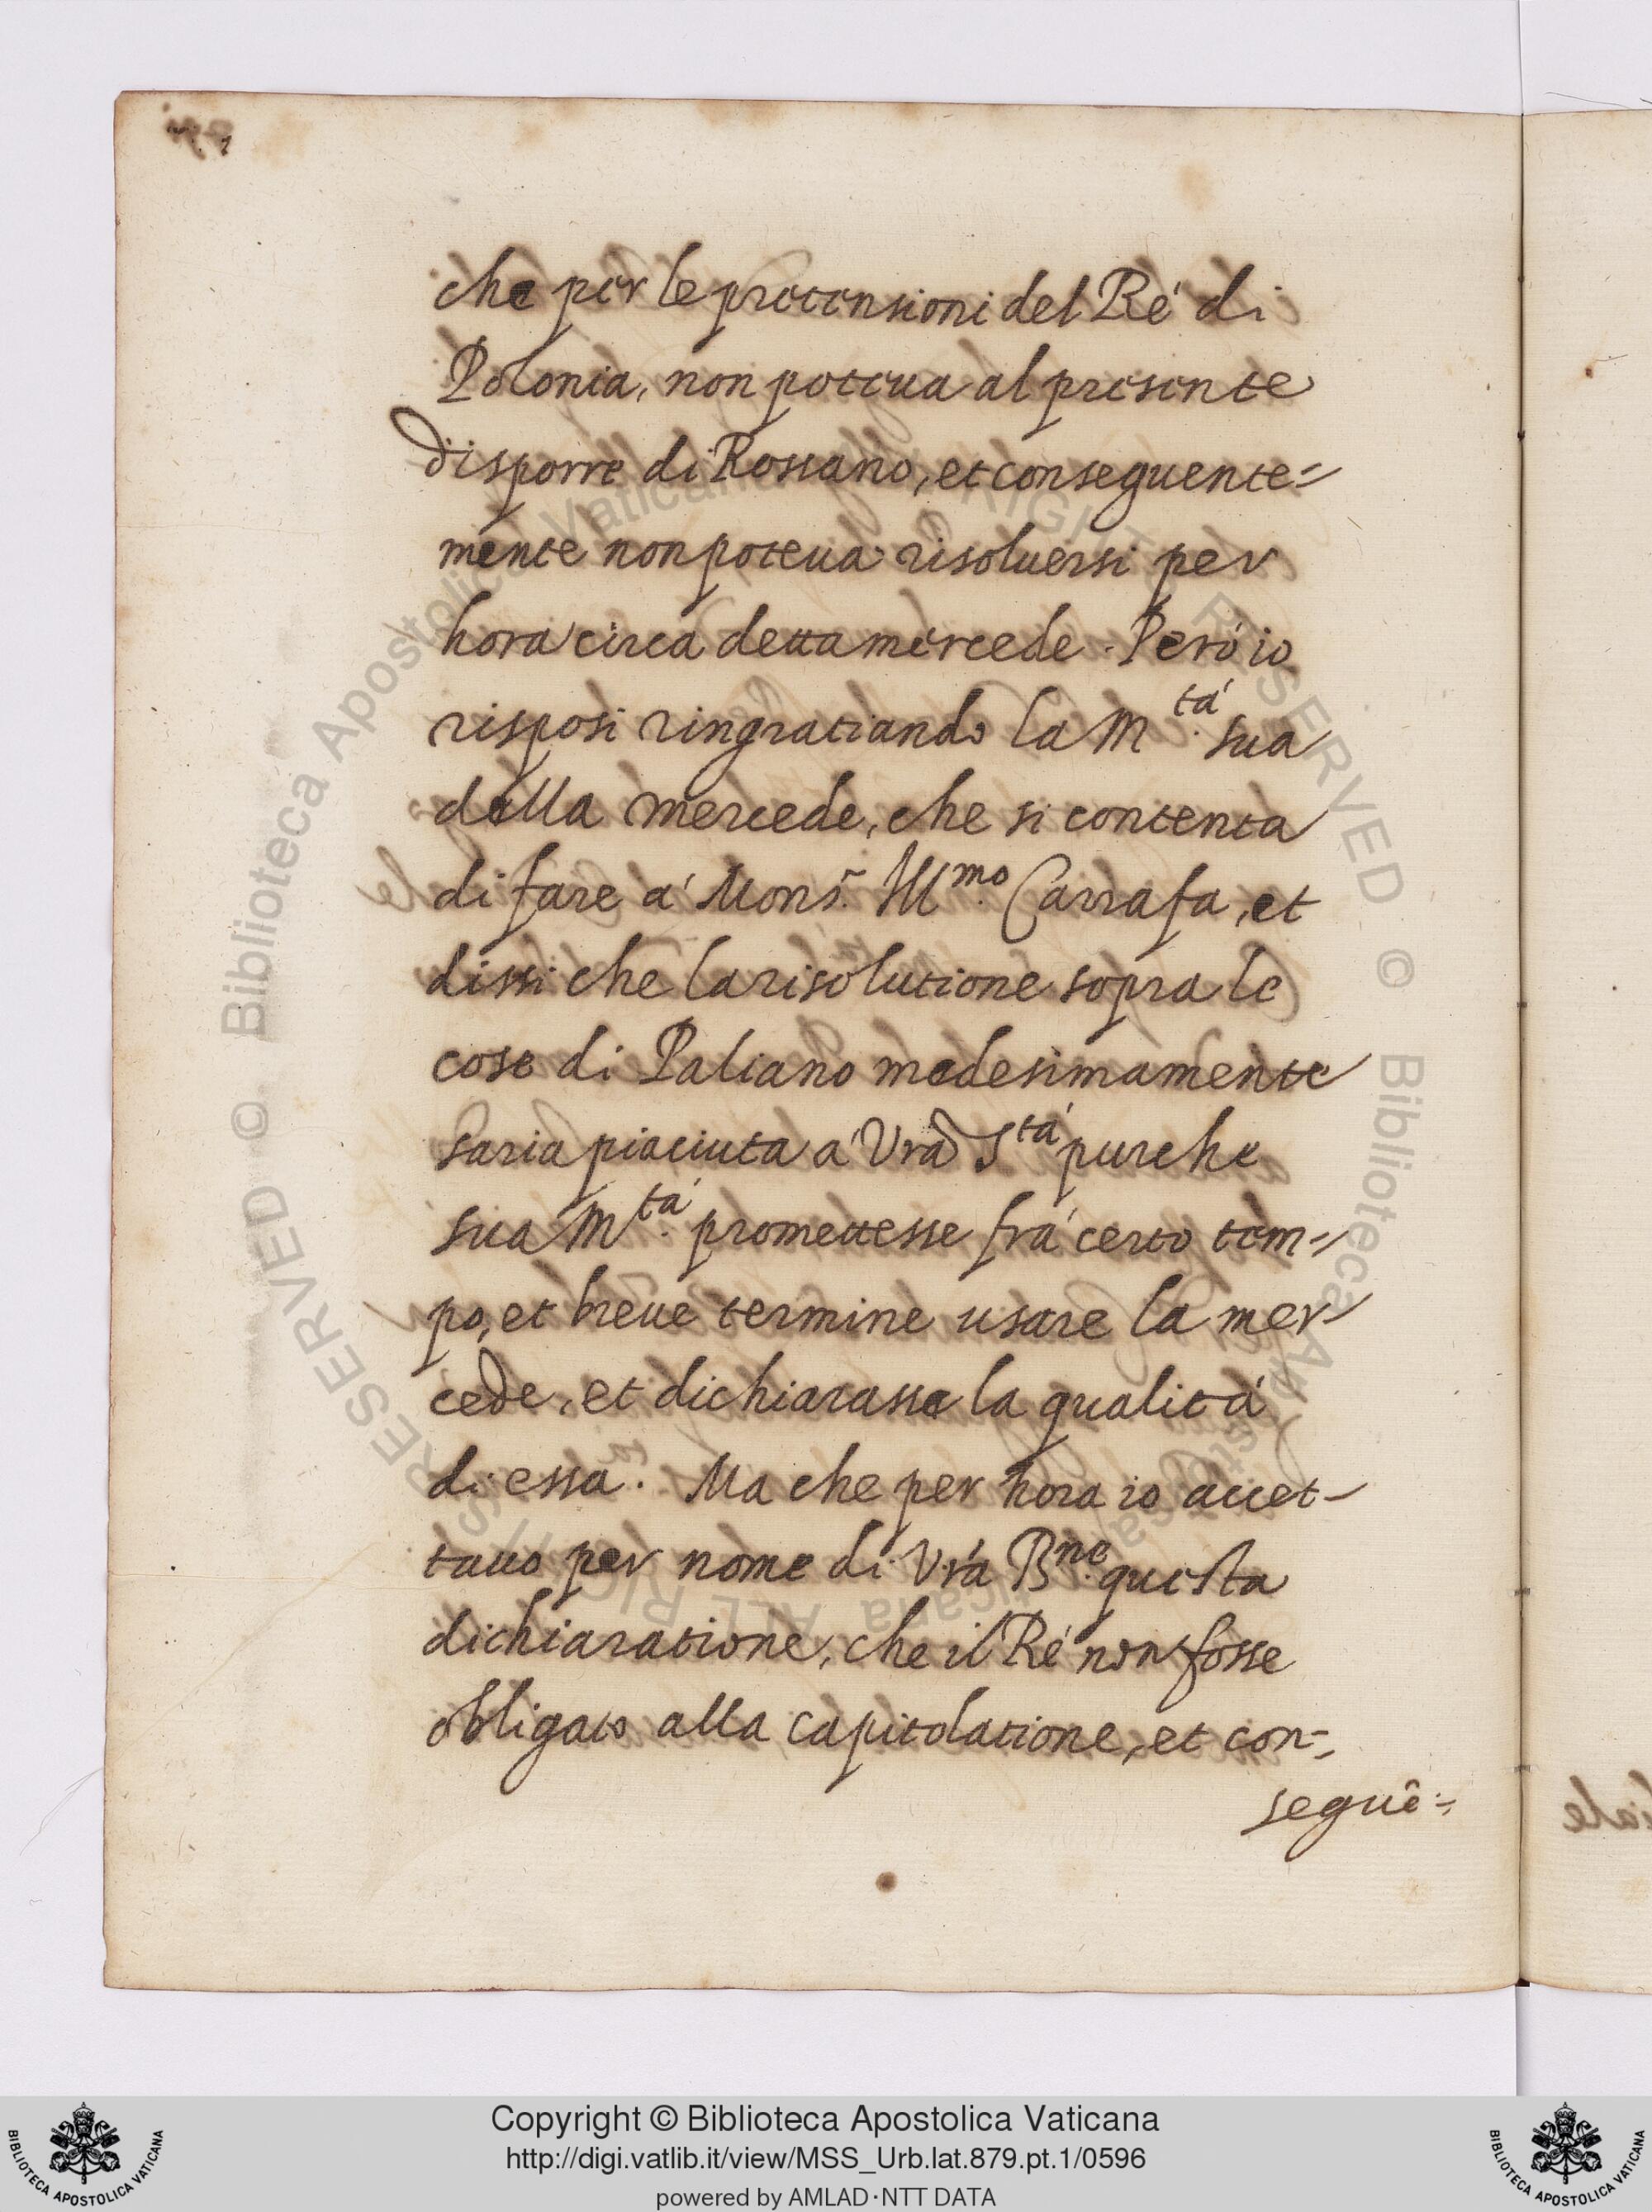 che per le pretensioni del Ré di
Polonia, non poteua al presente
disporre di Rossano, et conseguente=
mente non poteua risoluersi per
hora circa detta mercede. Peró io
risposi ringratiando la M.tá sua
della mercede, che si contenta
di fare á Mons.r Ill.mo Carrafa, et
dissi che la risolutione sopra le
cose di Paliano medesimamente
saria piaciuta á Vra Stá purche
sua M.tá promettesse frá certo tem=
po, et breue termine usare la mer-
cede, et dichiarasse la qualitá
di essa. Ma che per hora io accet-
tauo per nome di Vra B.ne questa
dichiaratione, che il Ré non fosse
obligato alla capitolatione, et con=
seguê=
Copyright © Biblioteca Apostolica Vaticana
http://digi.vatlib.it/view/MSS_Urb.lat.879.pt.1/0596
powered by AMLAD·NTT DATA
BIBLIOTECA APOSTOLICA VATICANA
BIBLIOTECA APOSTOLICA VATICANA
© Biblioteca Apostolica Vaticana ALL RIGHTS RESERVED